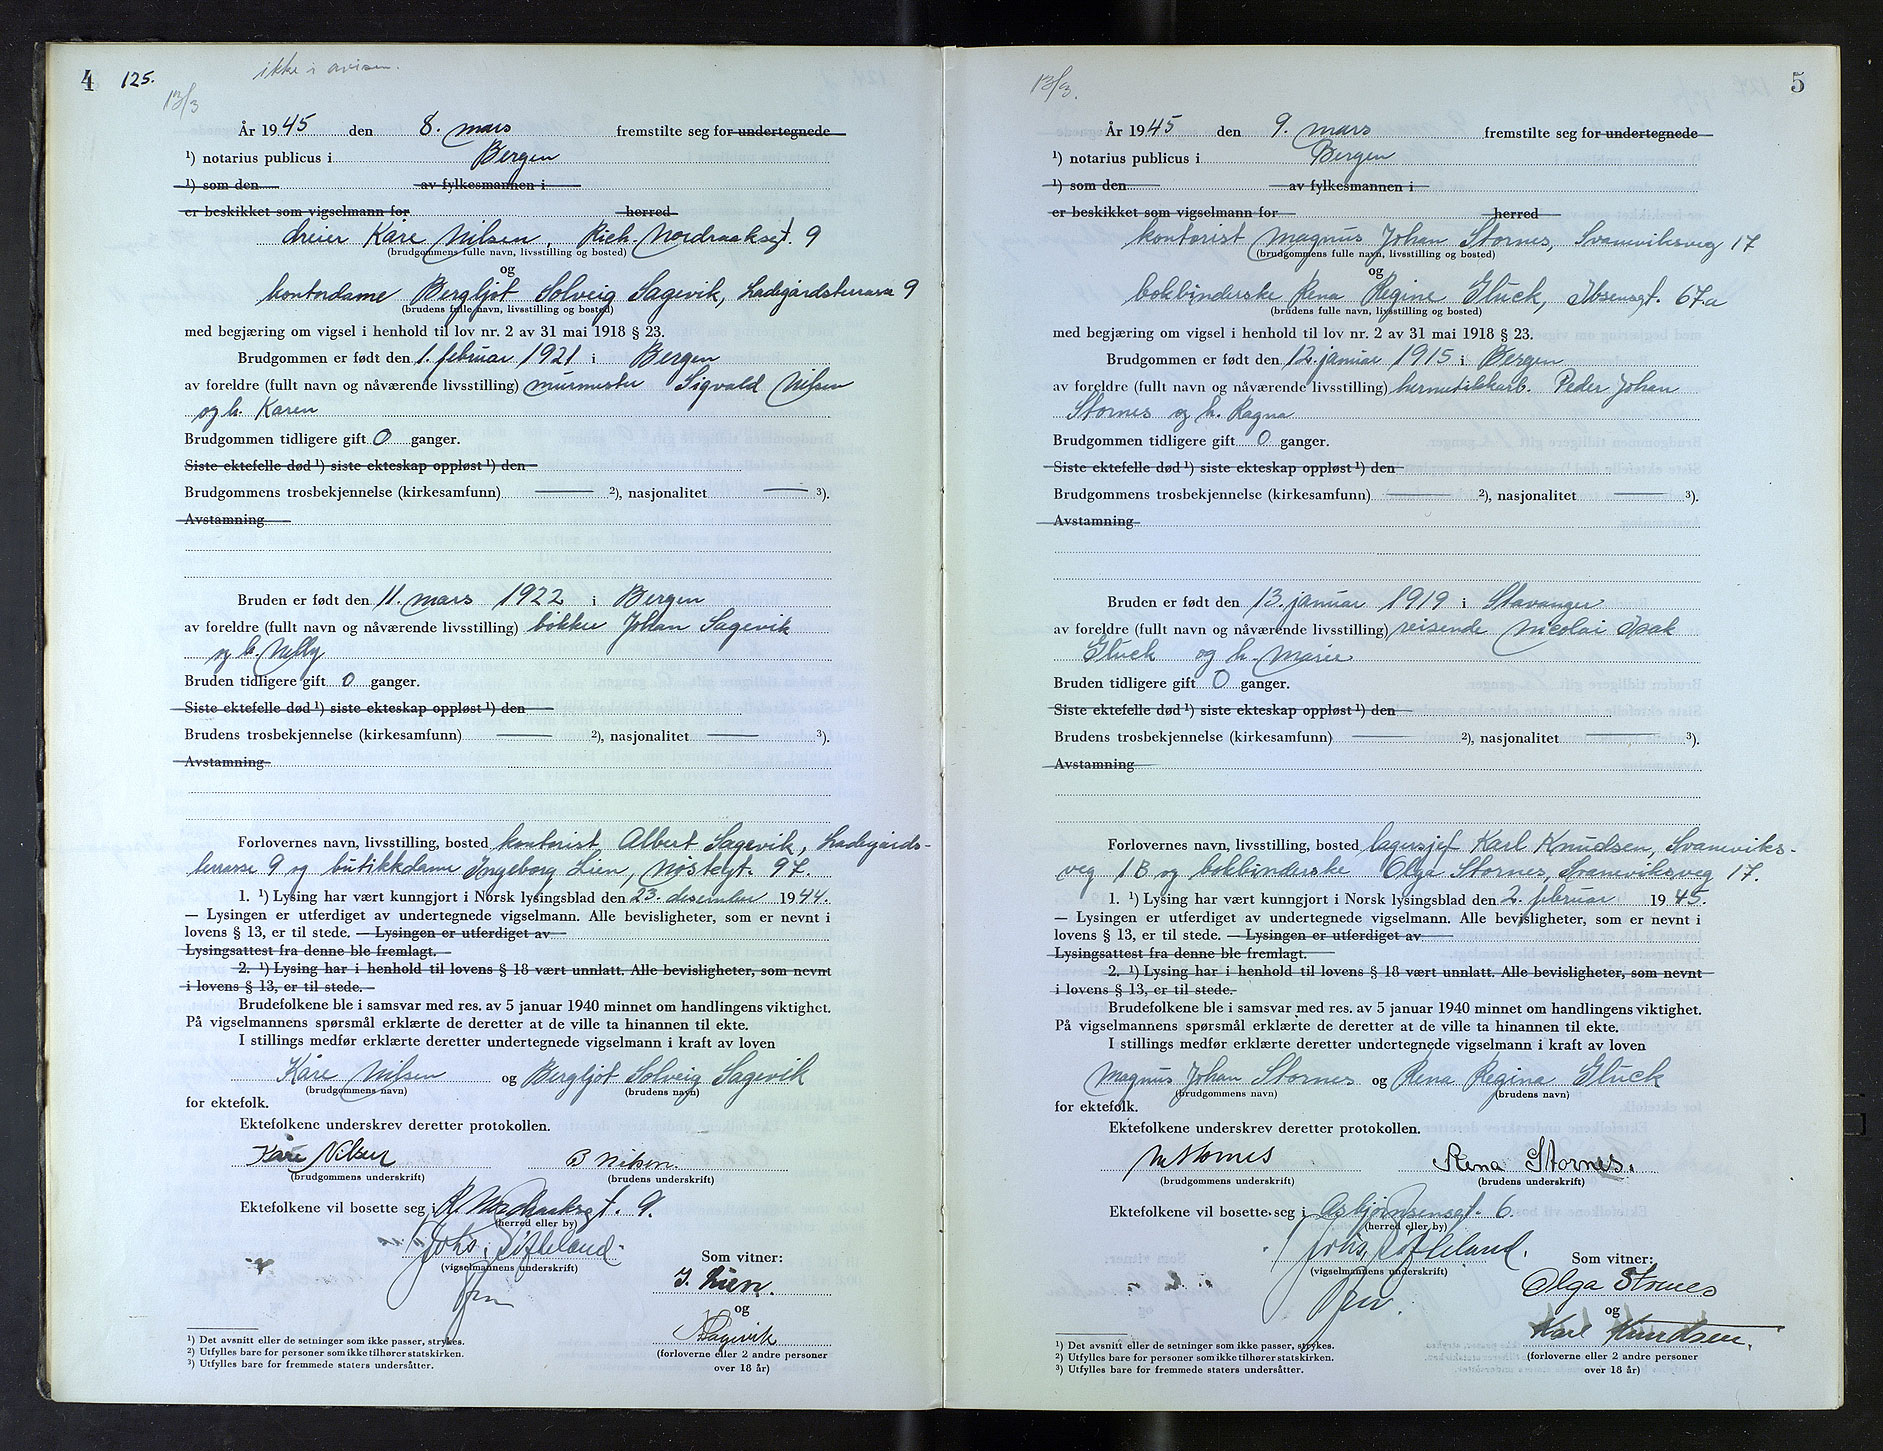 4 125.
ikke i avisen.
13/3
År 1945 den 8. mars fremstilte seg for undertegnede
¹) notarius publicus i Bergen
¹) som den av fylkesmannen i
er beskikket som vigselmann for herred
dreier Kåre Nilsen, Rich. Nordraaksgt. 9
(brudgommens fulle navn, livsstilling og bosted)
og
kontordame Bergljot Solveig Sagevik, Ladegårdsterrasse 9
(brudens fulle navn, livsstilling og bosted)
med begjæring om vigsel i henhold til lov nr. 2 av 31 mai 1918 § 23.
Brudgommen er født den 1. februar 1921 i Bergen
av foreldre (fullt navn og nåværende livsstilling) murmester Sigvald Nilsen
og h. Karen
Brudgommen tidligere gift 0 ganger.
Siste ektefelle død ¹) siste ekteskap oppløst ¹) den
Brudgommens trosbekjennelse (kirkesamfunn) — ²), nasjonalitet — ³).
Avstamning
Bruden er født den 11. mars 1922 i Bergen
av foreldre (fullt navn og nåværende livsstilling) bøkker Johan Sagevik
og h. Nelly
Bruden tidligere gift 0 ganger.
Siste ektefelle død ¹) siste ekteskap oppløst ¹) den
Brudens trosbekjennelse (kirkesamfunn) — ²), nasjonalitet — ³).
Avstamning
Forlovernes navn, livsstilling, bosted kontorist Albert Sagevik, Ladegårds-
terrasse 9 og butikkdame Ingeborg Lien, Nøstegt. 97.
1. ¹) Lysing har vært kunngjort i Norsk lysingsblad den 23. desember 1944.
— Lysingen er utferdiget av undertegnede vigselmann. Alle bevisligheter, som er nevnt i
lovens § 13, er til stede. — Lysingen er utferdiget av
Lysingsattest fra denne ble fremlagt.
2. ¹) Lysing har i henhold til lovens § 18 vært unnlatt. Alle bevisligheter, som nevnt
i lovens § 13, er til stede.
Brudefolkene ble i samsvar med res. av 5 januar 1940 minnet om handlingens viktighet.
På vigselmannens spørsmål erklærte de deretter at de ville ta hinannen til ekte.
I stillings medfør erklærte deretter undertegnede vigselmann i kraft av loven
Kåre Nilsen og Bergljot Solveig Sagevik
(brudgommens navn) (brudens navn)
for ektefolk.
Ektefolkene underskrev deretter protokollen.
Kåre Nilsen B Nilsen.
(brudgommens underskrift) (brudens underskrift)
Ektefolkene vil bosette seg i R. Nordraaksgt. 9.
(herred eller by)
Johs. Sifteland
(vigselmannens underskrift)
Som vitner:
I. Lien.
og
Sagevik
(forloverne eller 2 andre personer
over 18 år)
¹) Det avsnitt eller de setninger som ikke passer, strykes.
²) Utfylles bare for personer som ikke tilhører statskirken.
³) Utfylles bare for fremmede staters undersåtter.
5
13/3.
År 1945 den 9. mars fremstilte seg for undertegnede
¹) notarius publicus i Bergen
¹) som den av fylkesmannen i
er beskikket som vigselmann for herred
kontorist Magnus Johan Stornes, Svaneviksveg 17
(brudgommens fulle navn, livsstilling og bosted)
og
bokbinderske Rena Regine Gluck, Ibsensgt. 67a
(brudens fulle navn, livsstilling og bosted)
med begjæring om vigsel i henhold til lov nr. 2 av 31 mai 1918 § 23.
Brudgommen er født den 12. januar 1915 i Bergen
av foreldre (fullt navn og nåværende livsstilling) hermetikkarb. Peder Johan
Stornes og h. Ragna
Brudgommen tidligere gift 0 ganger.
Siste ektefelle død ¹) siste ekteskap oppløst ¹) den
Brudgommens trosbekjennelse (kirkesamfunn) — ²), nasjonalitet — ³).
Avstamning
Bruden er født den 13. januar 1919 i Stavanger
av foreldre (fullt navn og nåværende livsstilling) reisende Nicolai Isak
Gluck og h. Marie
Bruden tidligere gift 0 ganger.
Siste ektefelle død ¹) siste ekteskap oppløst ¹) den
Brudens trosbekjennelse (kirkesamfunn) — ²), nasjonalitet — ³).
Avstamning
Forlovernes navn, livsstilling, bosted lagersjef Karl Knudsen, Svaneviks-
veg 1B og bokbinderske Olga Stornes, Svaneviksveg 17.
1. ¹) Lysing har vært kunngjort i Norsk lysingsblad den 2. februar 1945.
— Lysingen er utferdiget av undertegnede vigselmann. Alle bevisligheter, som er nevnt i
lovens § 13, er til stede. — Lysingen er utferdiget av
Lysingsattest fra denne ble fremlagt.
2. ¹) Lysing har i henhold til lovens § 18 vært unnlatt. Alle bevisligheter, som nevnt
i lovens § 13, er til stede.
Brudefolkene ble i samsvar med res. av 5 januar 1940 minnet om handlingens viktighet.
På vigselmannens spørsmål erklærte de deretter at de ville ta hinannen til ekte.
I stillings medfør erklærte deretter undertegnede vigselmann i kraft av loven
Magnus Johan Stornes og Rena Regina Gluck
(brudgommens navn) (brudens navn)
for ektefolk.
Ektefolkene underskrev deretter protokollen.
M Stornes Rena Stornes.
(brudgommens underskrift) (brudens underskrift)
Ektefolkene vil bosette seg i Asbjørnsensgt. 6.
(herred eller by)
Johs. Sifteland.
(vigselmannens underskrift)
Som vitner:
Olga Stornes
og
Karl Knudsen.
(forloverne eller 2 andre personer
over 18 år)
¹) Det avsnitt eller de setninger som ikke passer, strykes.
²) Utfylles bare for personer som ikke tilhører statskirken.
³) Utfylles bare for fremmede staters undersåtter.